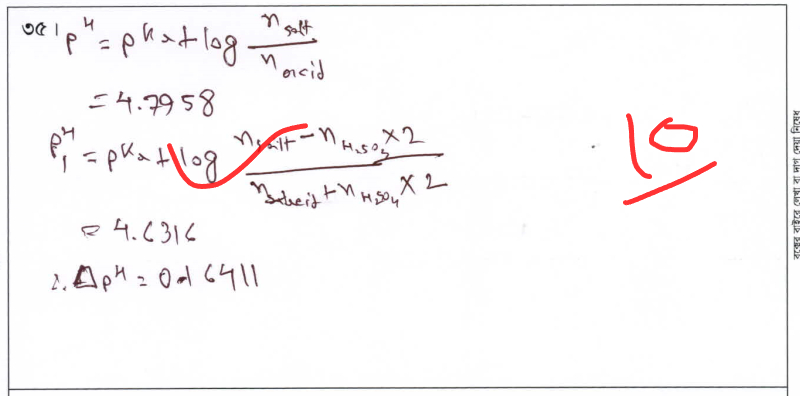 ৩৫। pH = pKa + log n_salt / n_acid
= 4.7958
pH₁ = pKa + log (n_salt - n_H₂SO₄ × 2) / (n_acid + n_H₂SO₄ × 2)
= 4.6316
∴ ΔpH = 0.16411
10